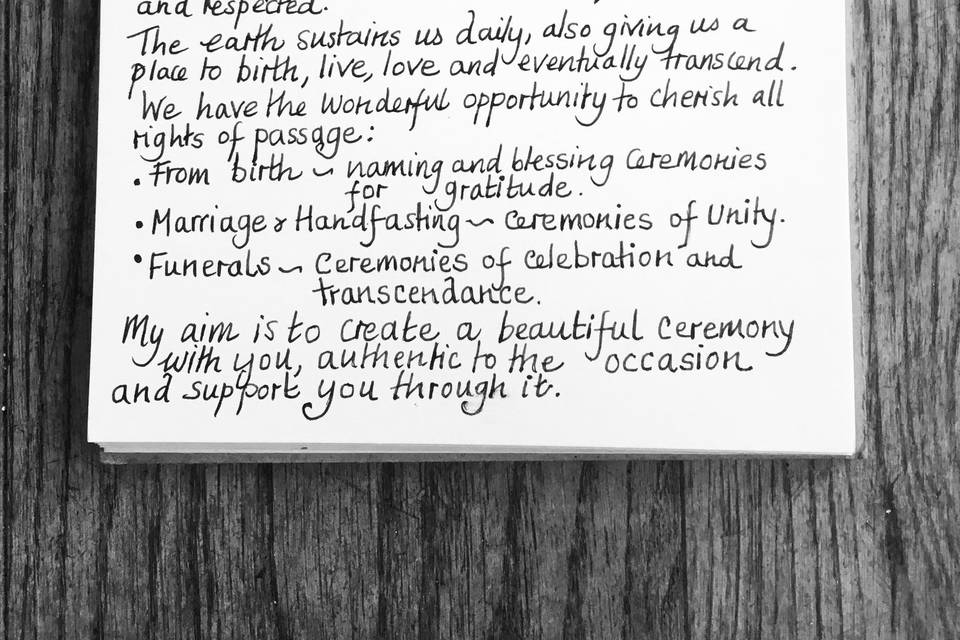 and respected.
The earth sustains us daily, also giving us a
place to birth, live, love and eventually transcend.
We have the wonderful opportunity to cherish all
rights of passage:
• From birth ~ naming and blessing ceremonies
for gratitude.
• Marriage & Handfasting ~ ceremonies of Unity.
• Funerals ~ Ceremonies of celebration and
transcendance.
My aim is to create a beautiful ceremony
with you, authentic to the occasion
and support you through it.